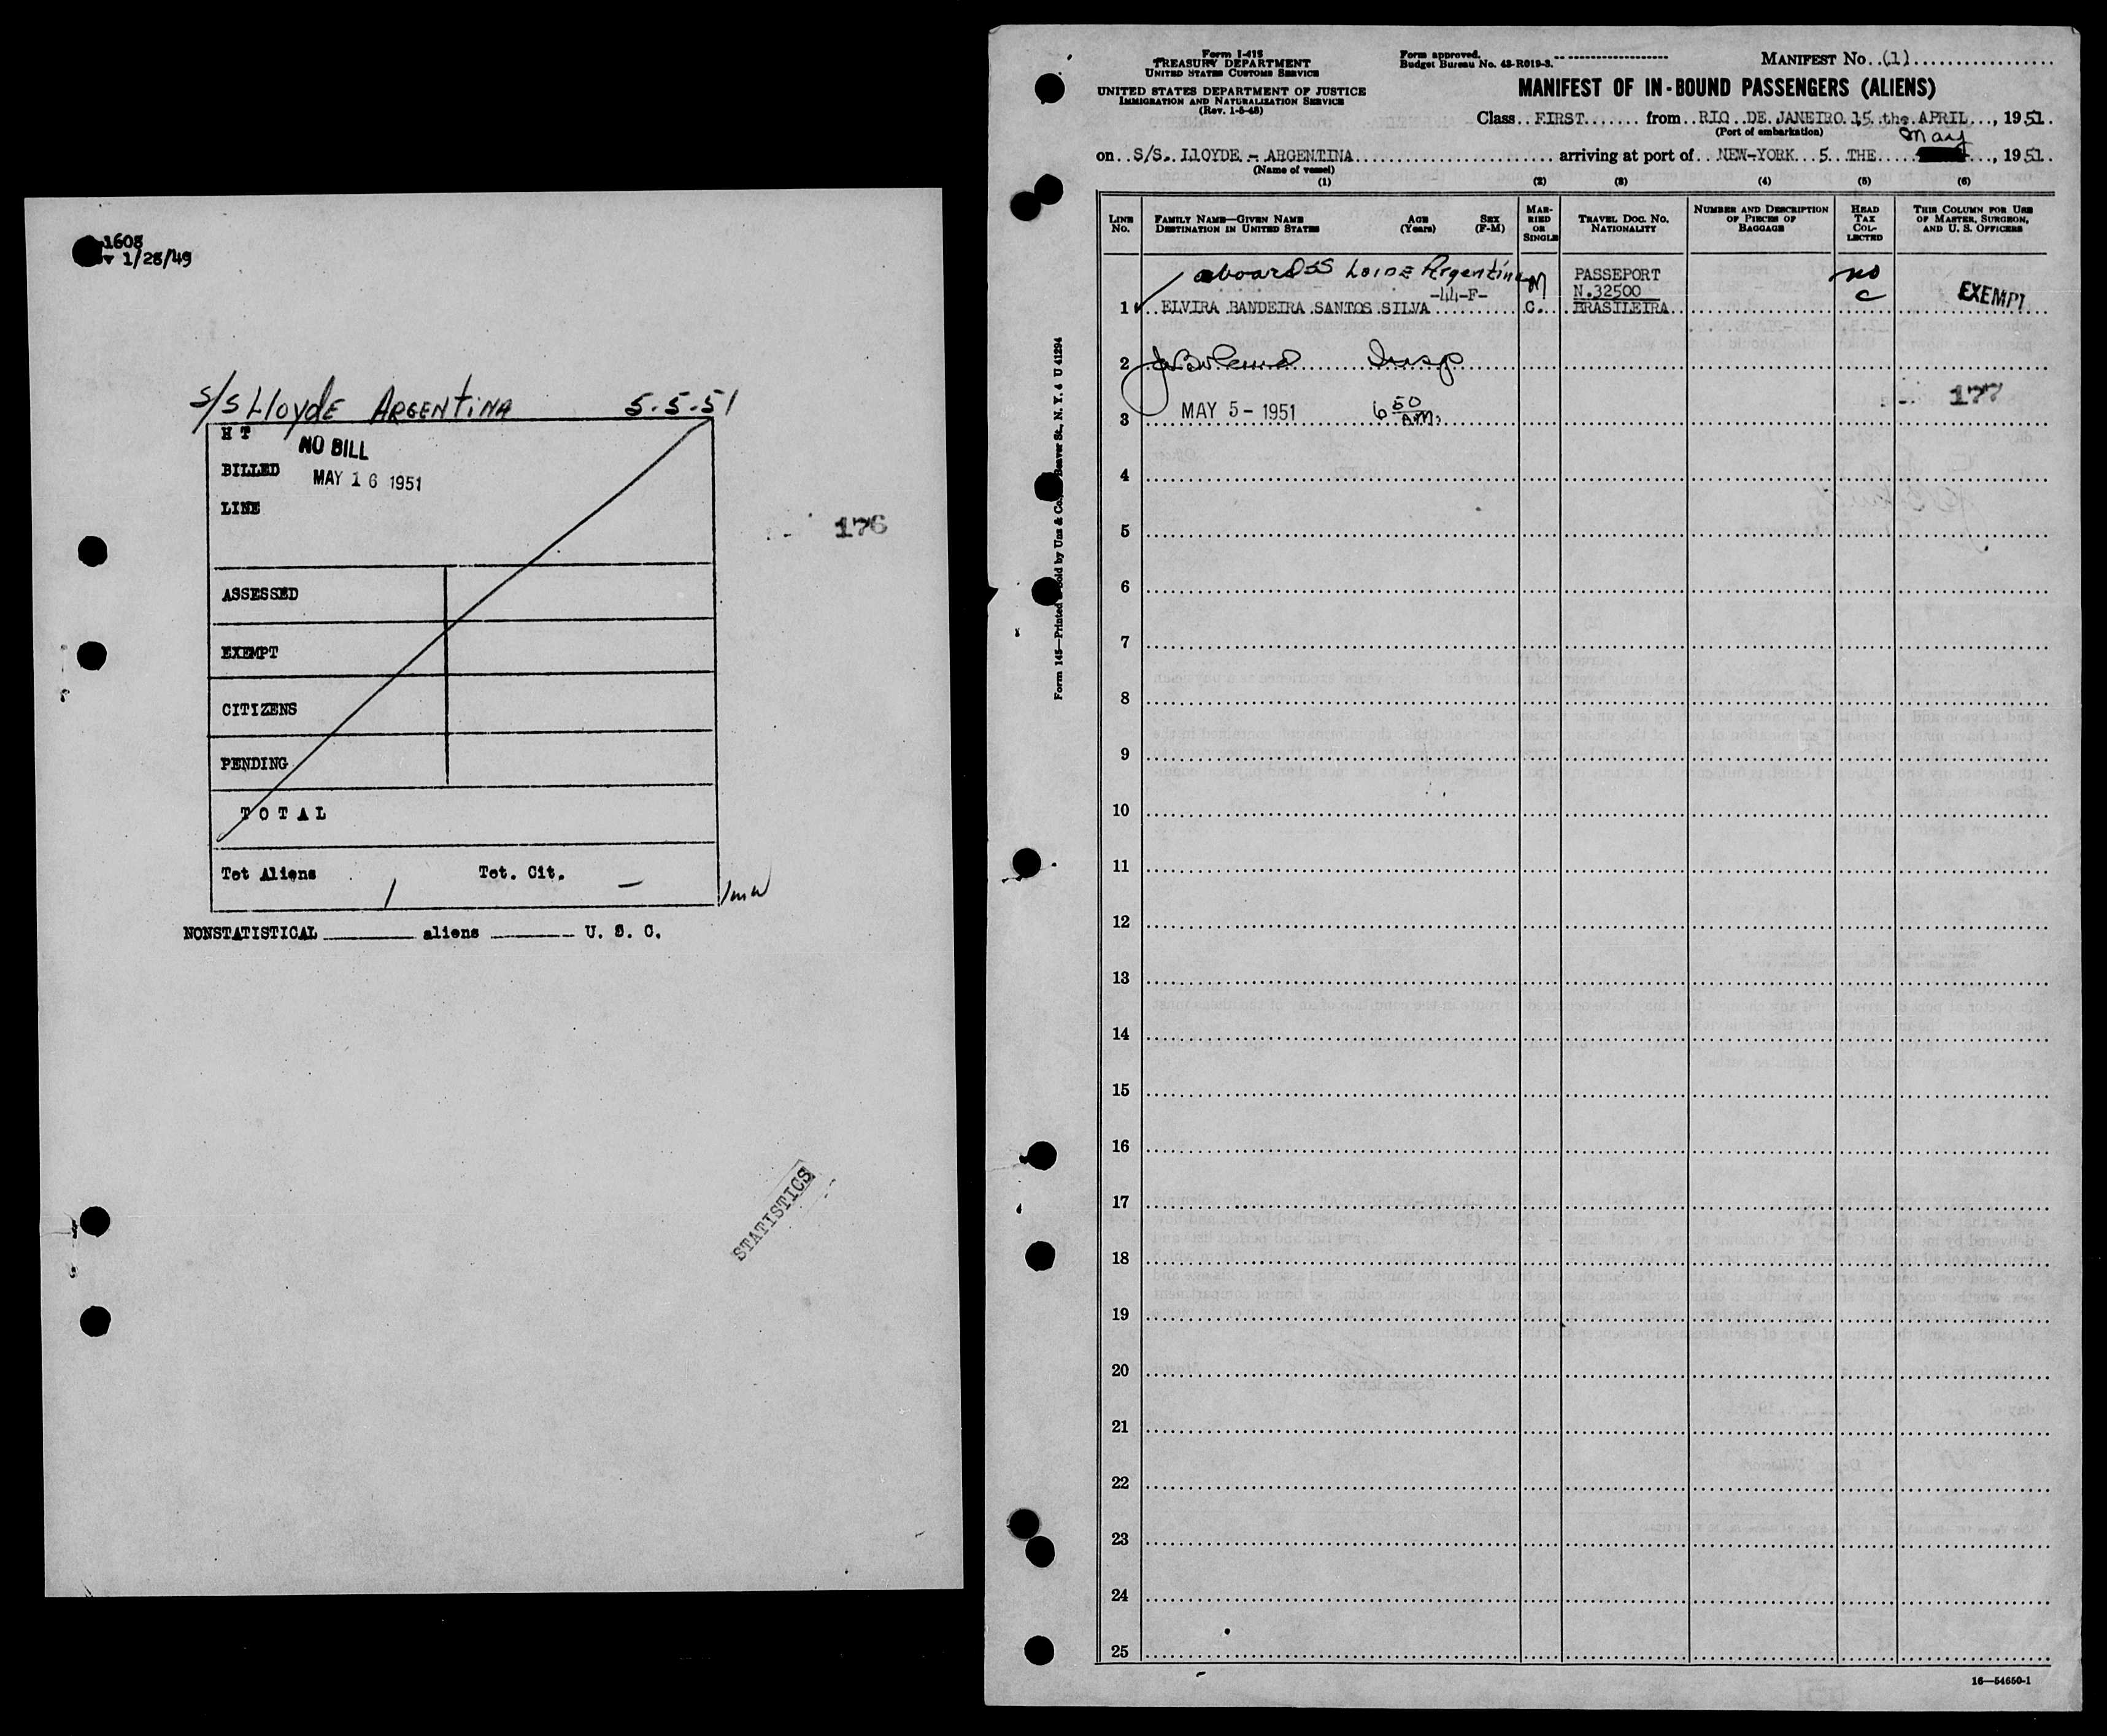 1608
v 1/28/49
S/S Lloyde Argentina 5-5-51
HT
NO BILL
BILLED MAY 16 1951
LINE
176
ASSESSED
EXEMPT
CITIZENS
PENDING
TOTAL
Tot Aliens / Tot. Cit. —
NONSTATISTICAL aliens U. S. C.
STATISTICS
Form I-415
TREASURY DEPARTMENT
UNITED STATES CUSTOMS SERVICE
UNITED STATES DEPARTMENT OF JUSTICE
IMMIGRATION AND NATURALIZATION SERVICE
(Rev. 1-5-48)
Form approved.
Budget Bureau No. 43-R019-3.
MANIFEST NO. (1)
MANIFEST OF IN-BOUND PASSENGERS (ALIENS)
Class FIRST from RIO DE JANEIRO 15 the APRIL, 1951
(Port of embarkation)
May
on S/S. LLOYDE - ARGENTINA arriving at port of NEW-YORK 5 THE, 1951
(Name of vessel)
(1) (2) (3) (4) (5) (6)
LINE NO.
FAMILY NAME—GIVEN NAME
DESTINATION IN UNITED STATES
AGE (Years)
SEX (F-M)
MARRIED OR SINGLE
TRAVEL DOC. NO.
NATIONALITY
NUMBER AND DESCRIPTION OF PIECES OF BAGGAGE
HEAD TAX COLLECTED
THIS COLUMN FOR USE OF MASTER, SURGEON, AND U. S. OFFICERS
aboard SS Loide Argentina M PASSEPORT no
-44-F- N.32500
1 ELVIRA BANDEIRA SANTOS SILVA C. BRASILEIRA c EXEMPT
2 Insp
177
3 MAY 5 - 1951 6 50 A.M.
4
5
6
7
8
9
10
11
12
13
14
15
16
17
18
19
20
21
22
23
24
25
16—54650-1